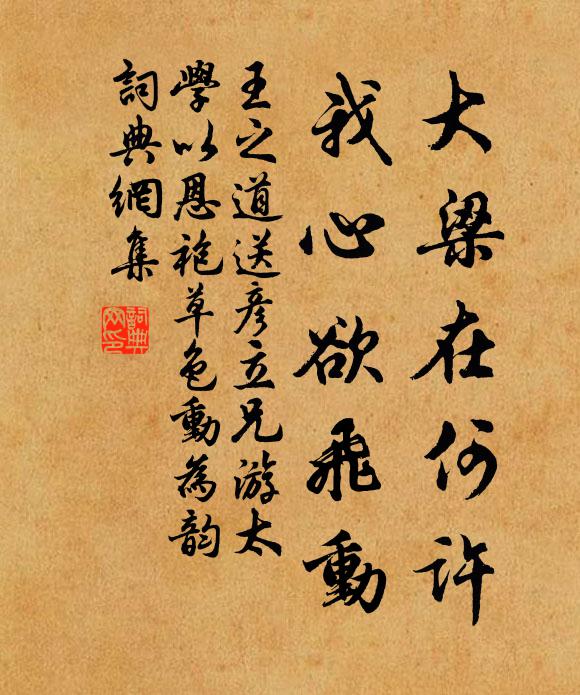 大梁在何許
我心欲飛動
王之道送彥立兄游太
學以恩袍草色動為韵
詞典網集
詞典網印